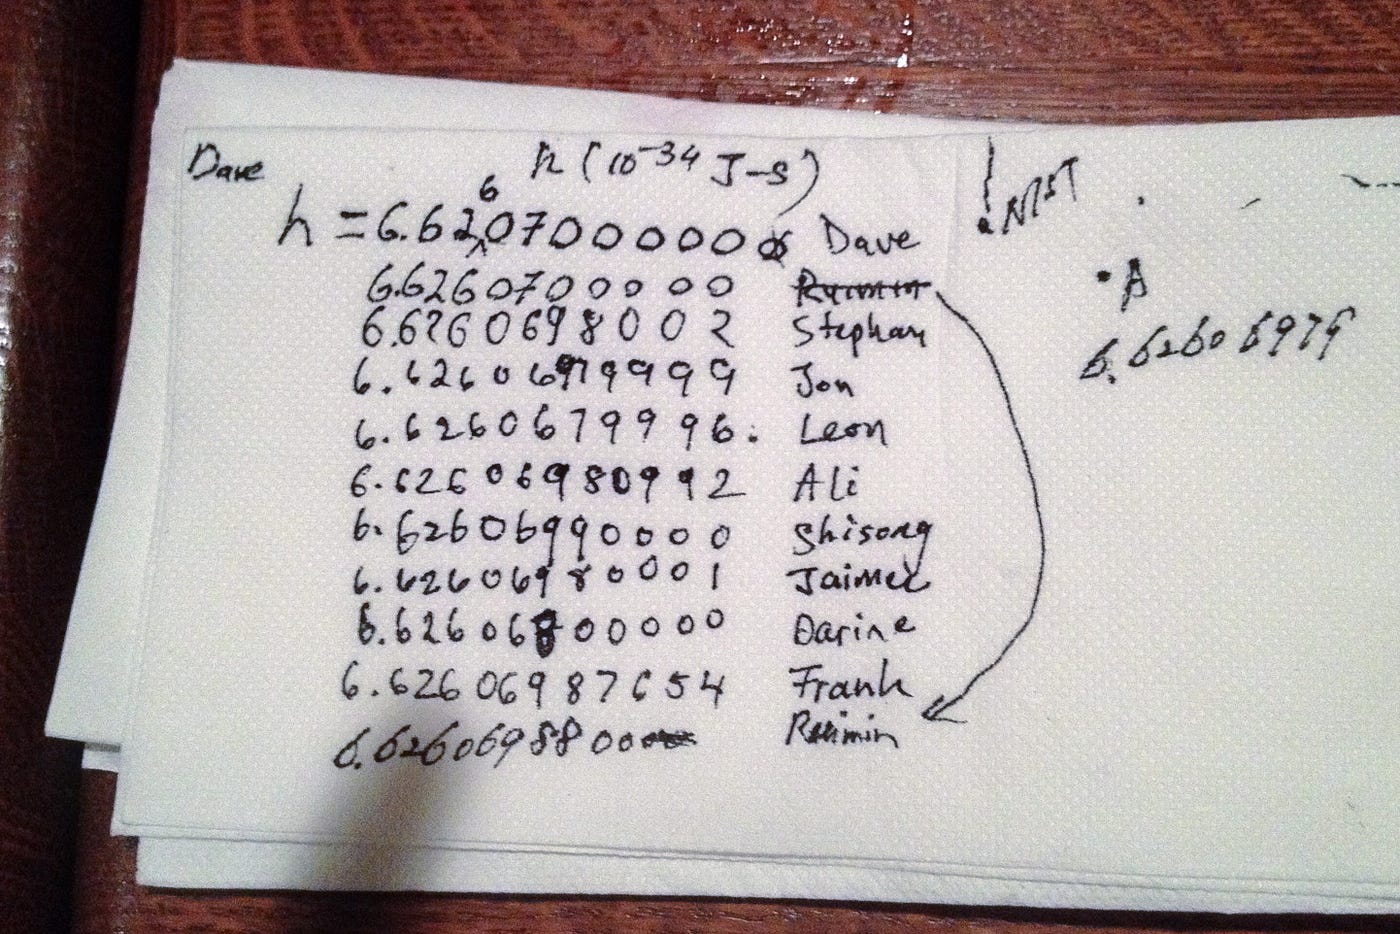 Dave
h (10⁻³⁴ J-S)
h = 6.6260700000 Dave
6.6260700000 Ruimin
6.6260698002 Stephan
6.6260697999 Jon
6.6260679996. Leon
6.62606980992 Ali
6.62606990000 Shisong
6.62606980001 Jaimee
6.62606800000 Darine
6.62606987654 Frank
6.6260698800 Ruimin
NIST
A
6.62606979